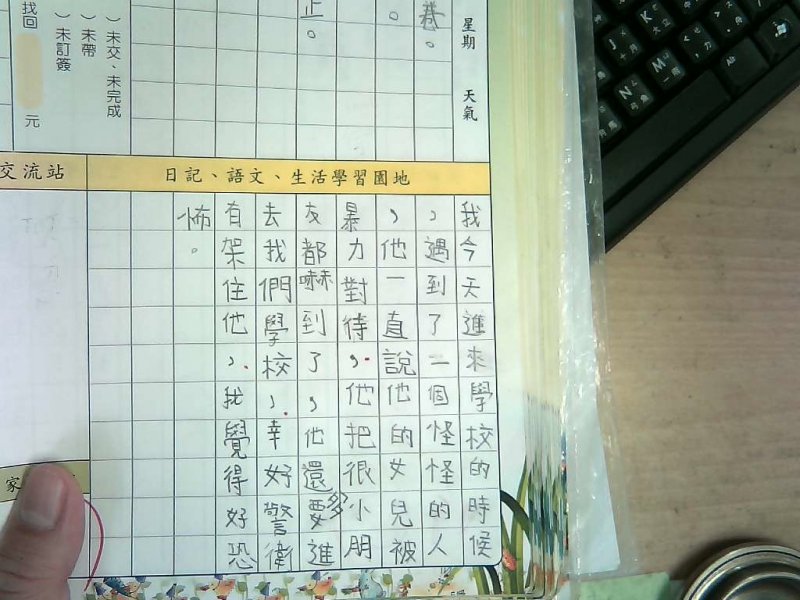 巷。
正。
星期
天氣
）未交、未完成
）未帶
）未訂簽
找回
元
交流站
日記、語文、生活學習園地
我今天進來學校的時候
，遇到了一個怪怪的人
，他一直說他的女兒被
暴力對待，他把很多小朋
友都嚇到了，他還要進
去我們學校，幸好警衛
有架住他，我覺得好恐
怖。
家